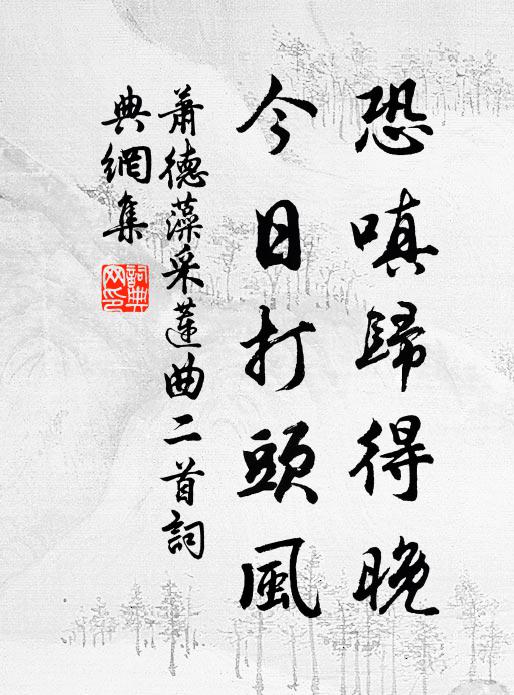 恐嗔歸得晚
今日打頭風
蕭德藻采蓮曲二首詞
典網集
詞典網印